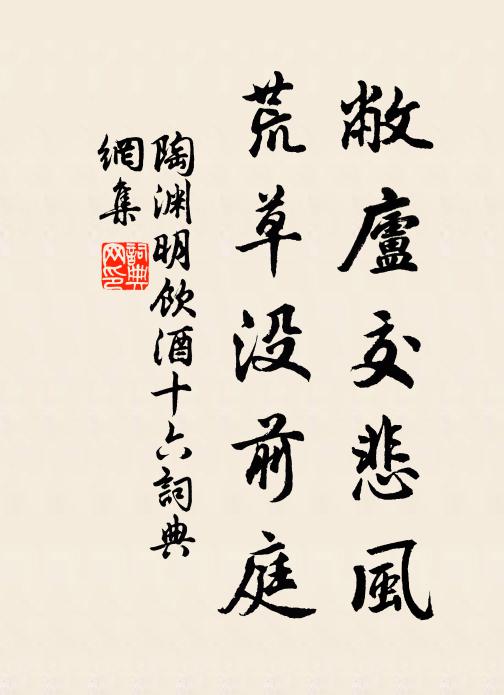 敝廬交悲風
荒草没前庭
陶渊明飲酒十六詞典
網集
詞典
网印